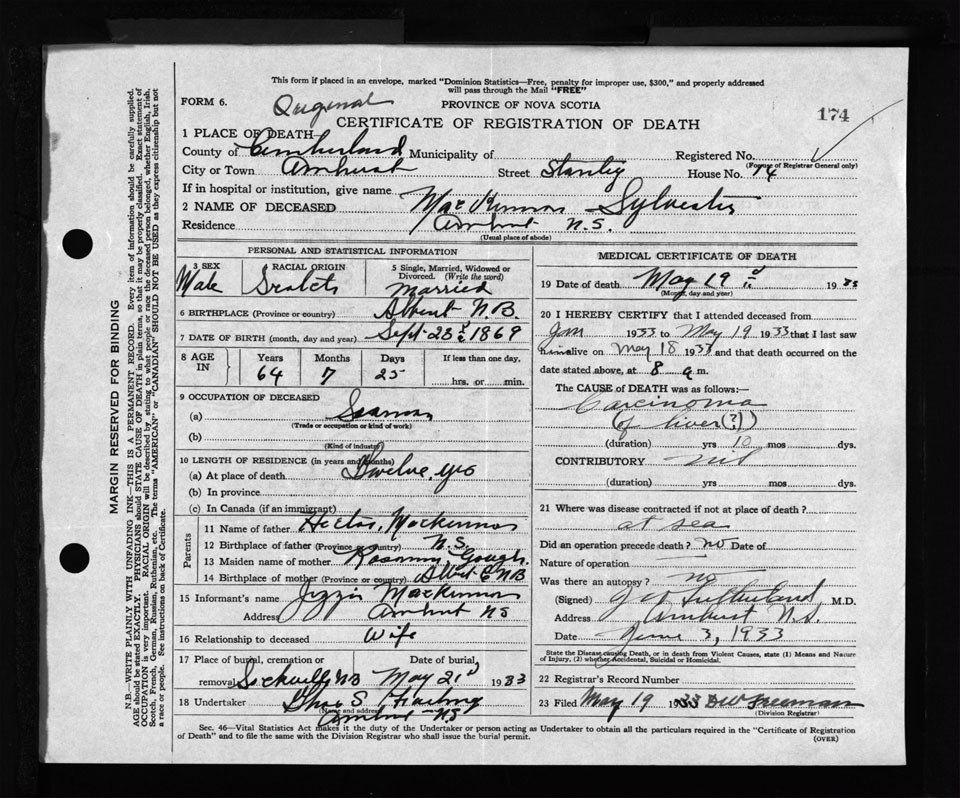 This form if placed in an envelope, marked "Dominion Statistics—Free, penalty for improper use, $300," and properly addressed
will pass through the Mail "FREE"
FORM 6. Original PROVINCE OF NOVA SCOTIA
CERTIFICATE OF REGISTRATION OF DEATH 174
1 PLACE OF DEATH—
County of Cumberland Municipality of Registered No.
(For use of Registrar General only)
City or Town Amherst Street Stanley House No. 74
If in hospital or institution, give name
2 NAME OF DECEASED MacKinnon Sylvester
Residence Amherst N.S.
(Usual place of abode)
MARGIN RESERVED FOR BINDING
N.B.—WRITE PLAINLY WITH UNFADING INK—THIS IS A PERMANENT RECORD. Every item of information should be carefully supplied.
AGE should be stated EXACTLY. PHYSICIANS should STATE CAUSE OF DEATH in plain terms, so that it may be properly classified. Exact statement of
OCCUPATION is very important. RACIAL ORIGIN will be described by stating to what people or race the deceased person belonged, whether English, Irish,
Scotch, French, German, Russian, Ruthenian, etc. The terms "AMERICAN" or "CANADIAN" SHOULD NOT BE USED as they express citizenship but not
a race or people. See instructions on back of Certificate.
PERSONAL AND STATISTICAL INFORMATION
3 SEX RACIAL ORIGIN 5 Single, Married, Widowed or
Divorced. (Write the word)
Male Scotch Married
6 BIRTHPLACE (Province or country) Albert N.B.
7 DATE OF BIRTH (month, day and year) Sept. 23 1869
8 AGE IN Years Months Days If less than one day,
64 7 25 hrs. or min.
9 OCCUPATION OF DECEASED
(a) Seaman
(Trade or occupation or kind of work)
(b)
(Kind of industry)
10 LENGTH OF RESIDENCE (in years and months)
(a) At place of death Twelve yrs
(b) In province
(c) In Canada (if an immigrant)
Parents
11 Name of father Hector MacKinnon
12 Birthplace of father (Province or country) N.S.
13 Maiden name of mother Gough
14 Birthplace of mother (Province or country) Albert Co NB
15 Informant's name Lizzie MacKinnon
Address Amherst NS
16 Relationship to deceased Wife
17 Place of burial, cremation or Date of burial,
removal Sackville NB May 21 1933
18 Undertaker Thos S.
(Name and address)
Amherst NS
MEDICAL CERTIFICATE OF DEATH
19 Date of death May 19 1933
(Month, day and year)
20 I HEREBY CERTIFY that I attended deceased from
Jan 1933 to May 19 1933 that I last saw
him alive on May 18 1933 and that death occurred on
date stated above, at 8 a m.
The CAUSE of DEATH was as follows:—
Carcinoma
(of liver (?))
(duration) yrs 10 mos dys.
CONTRIBUTORY nil
(duration) yrs. mos. dys.
21 Where was disease contracted if not at place of death?
at sea
Did an operation precede death? no Date of
Nature of operation
Was there an autopsy? no
(Signed) Sutherland M.D.
Address Amherst N.S.
Date June 3, 1933
State the Disease causing Death, or in death from Violent Causes, state (1) Means and Nature
of Injury, (2) whether Accidental, Suicidal or Homicidal.
22 Registrar's Record Number
23 Filed May 19 1933 DW Freeman
(Division Registrar)
Sec. 46—Vital Statistics Act makes it the duty of the Undertaker or person acting as Undertaker to obtain all the particulars required in the "Certificate of Registration
of Death" and to file the same with the Division Registrar who shall issue the burial permit. (OVER)